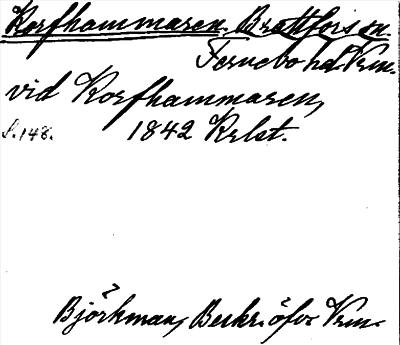 Korfhammaren. Brattfors sn.
Fernebo hd. Vrm.
vid Korfhammaren,
s. 148. 1842 Krlst.
Björkman, Beskr. öfver Vrm.